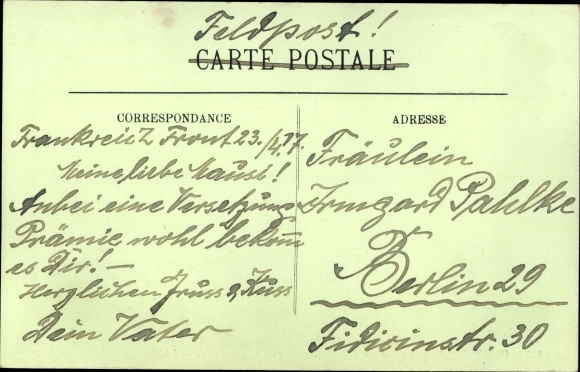 Feldpost!
CARTE POSTALE
CORRESPONDANCE
Frankreich Front 23./4.17.
Meine liebe Mausi!
Anbei eine Versetzungs
Prämie, wohl bekom
es Dir! —
Herzlichen Gruss & Kuss
Dein Vater
ADRESSE
Fräulein
Irmgard Pahlke
Berlin 29
Fidicinstr. 30